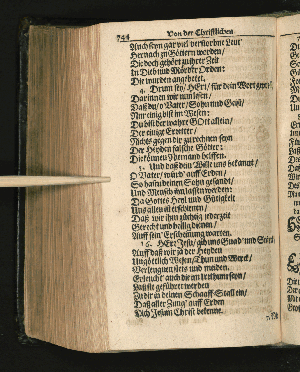 744 Von der Christlichen
Auch seyn gar viel verstorbne Leut/
Hernach zu Göttern worden/
Die doch gehört zu ihrer Zeit
In Dieb und Mörder Orden:
Die wurden angebetet.
4. Drum sey/ HErr/ für dein Wort
Darinnen wir nun lesen/
Daß du/ o Vater/ Sohn und Geist/
Nur einig bist im Wesen:
Du bist der wahre GOtt allein/
Der einige Erretter/
Nichts gegen dir zu rechnen seyn
Der Heyden falsche Götter:
Die können Niemand helffen.
5. Und daß dein Wille uns bekannt/
O Vater/ würd' auff Erden/
So hast du deinen Sohn gesandt/
Und Mensch ihn lassen werden:
Da Gottes Heyl und Gütigkeit
Uns allen ist erschienen/
Daß wir ihm züchtig jederzeit
Gerecht und heilig dienen/
Auff sein' Erscheinung warten.
6. HErr Jesu/ gib uns Gnad' und
Auff daß wir ja der Heyden
Ungöttlich Wesen/ Thun und Werck/
Verleugnen stets und meiden.
Erleucht' auch die im Irrthum seyn/
Laß sie geführet werden
Zu dir in deinen Schaaff-Stall ein/
Daß aller Zung' auff Erden
Dich Jesum Christ bekenne.